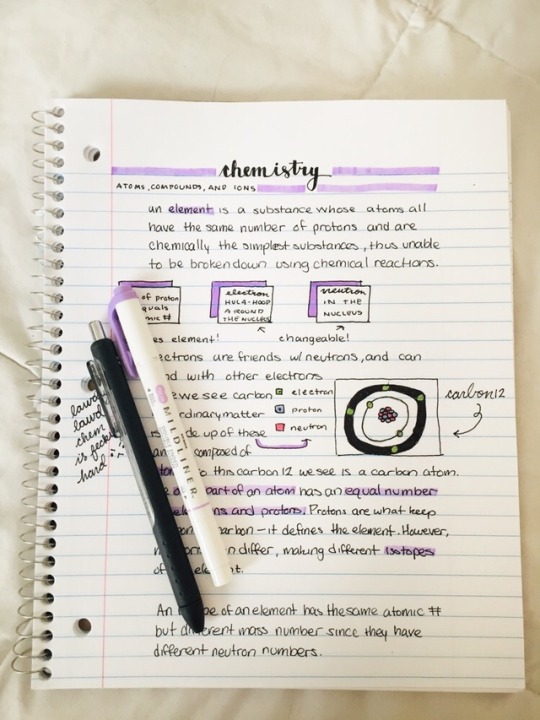 chemistry
ATOMS, COMPOUNDS, AND IONS
an element is a substance whose atoms all
have the same number of protons and are
chemically the simplest substances, thus unable
to be broken down using chemical reactions.
of proton
electron
HULA-HOOP
AROUND
THE NUCLEUS
neutron
IN THE
NUCLEUS
element!
changeable!
are friends w/ neutrons, and can
with other electrons
we see carbon
electron
proton
neutron
carbon 12
matter
up of these
composed of
chem
hard
MILDLINER
this carbon 12 we see is a carbon atom.
part of an atom has an equal number
and protons. Protons are what keep
carbon - it defines the element. However,
differ, making different isotopes
of
of an element has the same atomic #
but different mass number since they have
different neutron numbers.